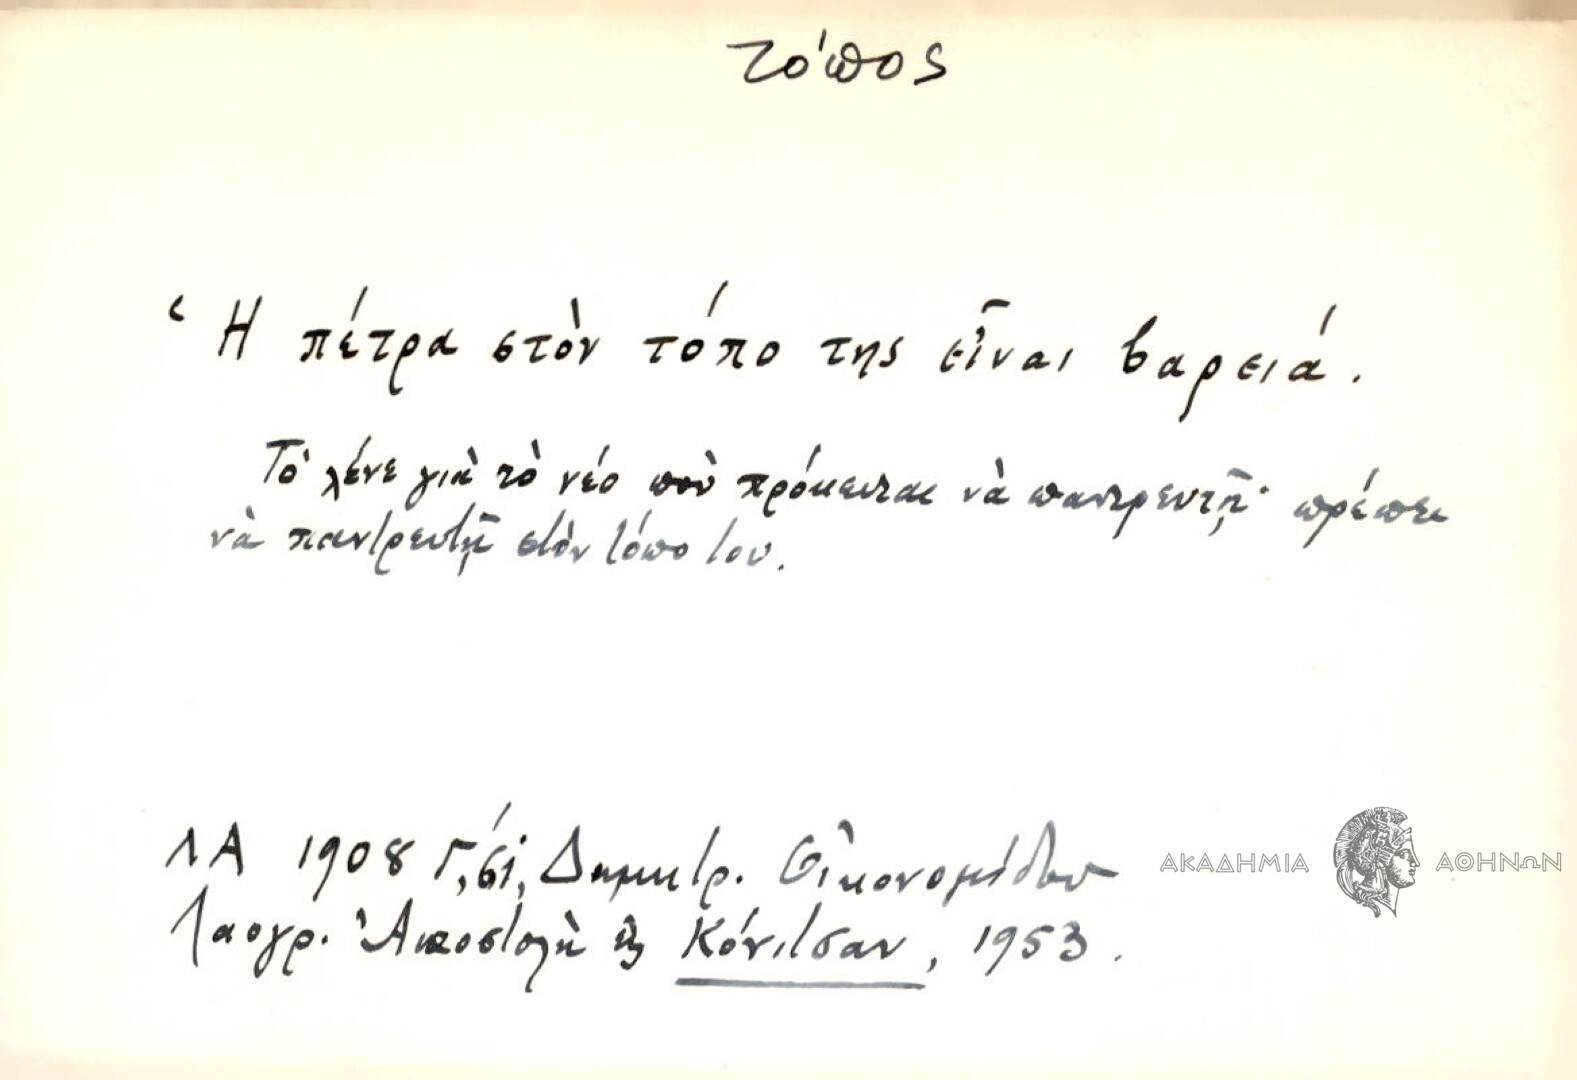 τόπος
Ἡ πέτρα στὸν τόπο της εἶναι βαρειά.
Τὸ λένε γιὰ τὸ νέο ποὺ πρόκειται νὰ παντρευτῇ· πρέπει
νὰ παντρευτῇ στὸν τόπο του.
ΛΑ 1908 Γ, Δημητρ. Οἰκονομίδου
Λαογρ. Ἀποστολὴ εἰς Κόνιτσαν, 1953.
ΑΚΑΔΗΜΙΑ ΑΘΗΝΩΝ